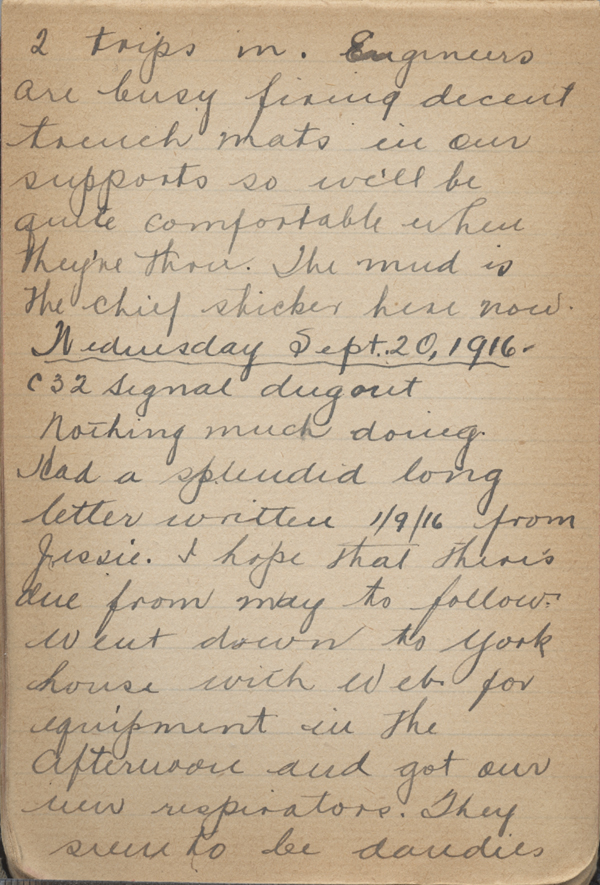 2 trips in. Engineers
are busy fixing decent
trench mats in our
supports so we'll be
quite comfortable when
they're thru. The mud is
the chief sticker here now.
Wednesday Sept. 20, 1916.
C32 Signal dugout
Nothing much doing.
Had a splendid long
letter written 1/9/16 from
Jessie. I hope that there's
one from may to follow.
Went down to York
house with Web. for
equipment in the
afternoon and got our
new respirators. They
seem to be dandies